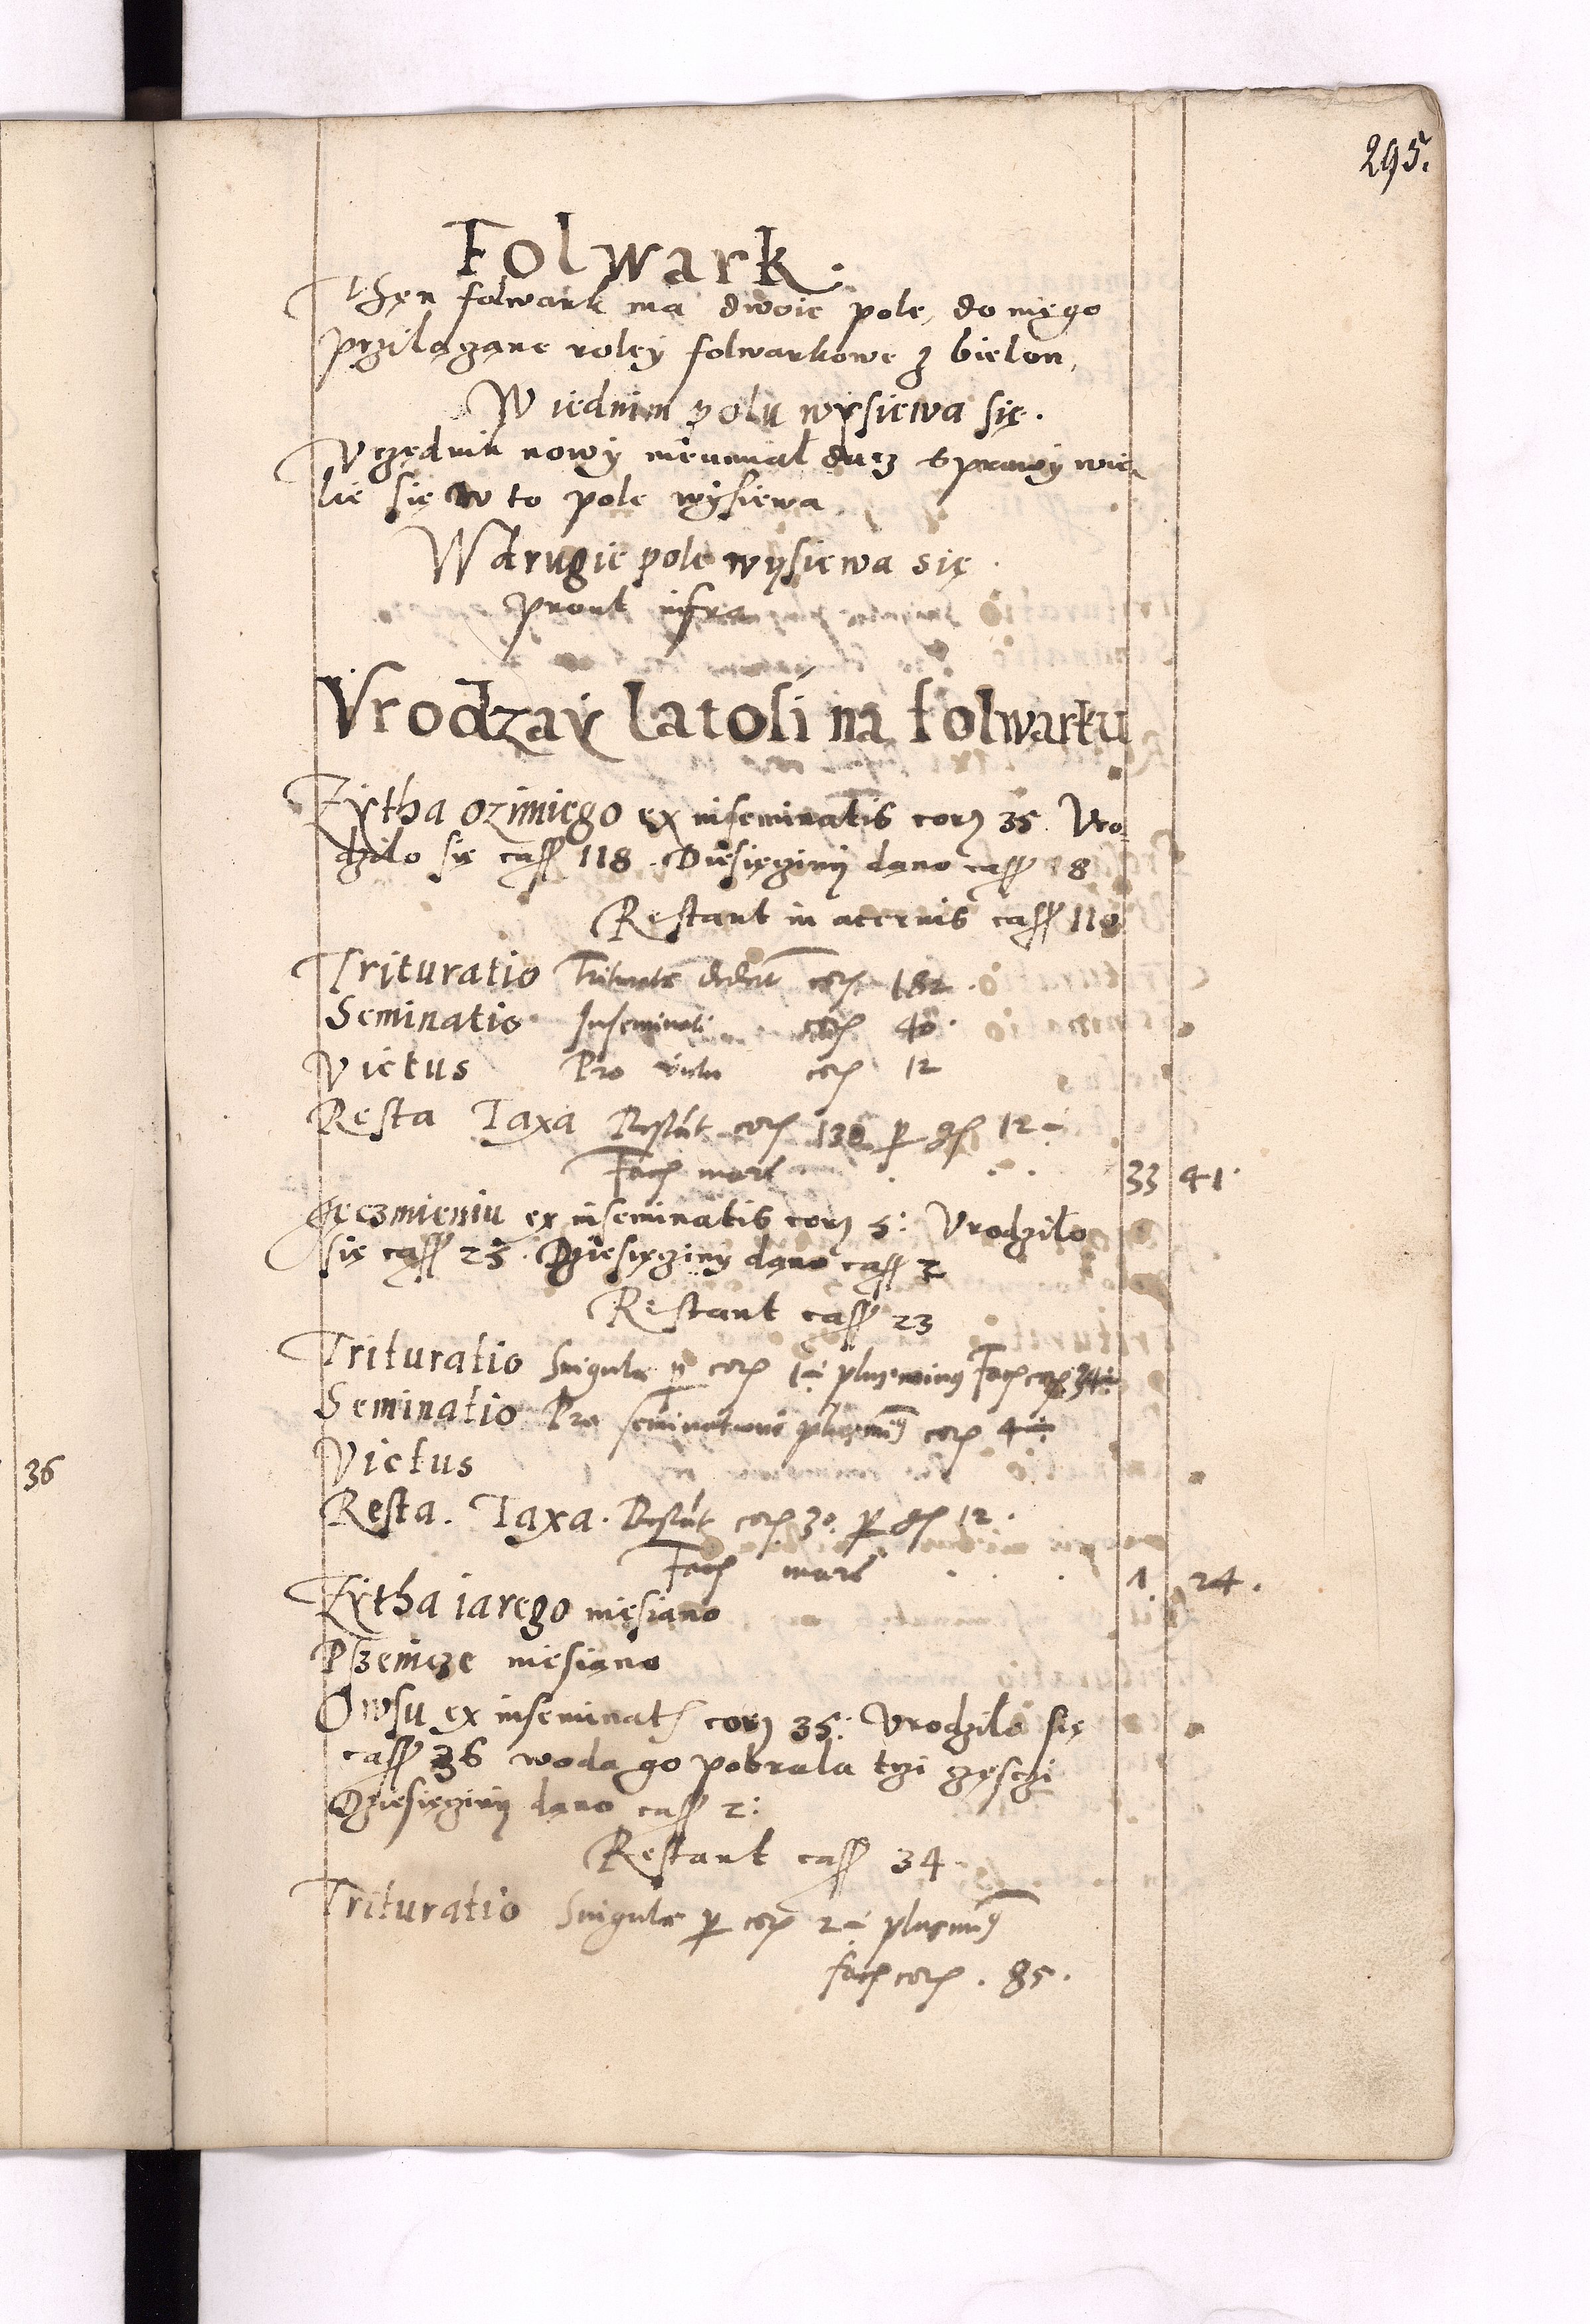 295.
Folwark.
Then folwark ma dwoie pole, do niego
przilązane roley folwarkowe z bielon,
W iednim polu wysiewa się.
Vrzędnik nowy nieumiał dacz sprawy wie-
lie się w to pole wysiewa
W drugie pole wysiewa się.
prout infra
Vrodzay latosi na folwarku
Zytha ozimiego ex inseminatis corz 35 Vro-
dzilo się cass 118. Diesięziny dano cass 8
Restant in acervis cass 110
Trituratio Triturate dederunt corz 182.
Seminatio Inseminati corz 40.
Victus Pro victu corz 12
Resta Taxa Restant corz 130 per gr 12 ÷
Facit marc . . . 33 41.
Jęczmieniu ex inseminatis corz 5: Vrodzilo
się cass 25. Dziesięziny dano cass 2
Restant cass 23
Trituratio Singule per corz 1 ÷ plus minus Facit corz 34 ÷
Seminatio Pro seminatione plus minus corz 4 ÷
36
Victus
Resta. Taxa. Restant corz 30 per gr 12.
Facit marc . . . 1. 24.
Zytha iarego niesiano
Pszenicze niesiano
Owsu ex inseminatis corz 35: Vrodzilo się
cass 36 woda go pobrala trzi częsczi
Dziesięziny dano cass 2:
Restant cass 34.
Trituratio Singule per corz 2 ÷ plus minus
facit corz . 85.